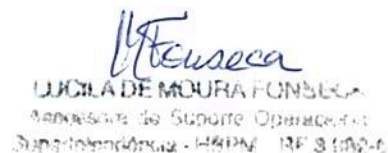 MFonseca
LUCILA DE MOURA FONSECA
Assessora de Suporte Operacional
Superintendência - HSPM